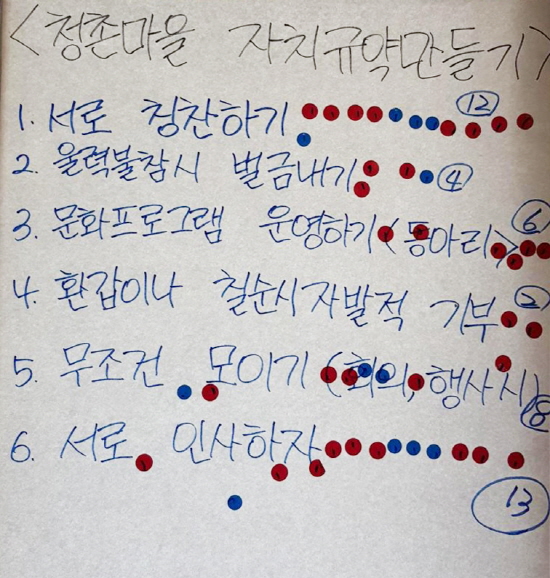 <청존마을 자치규약만들기>
1. 서로 칭찬하기 12
2. 울력불참시 벌금내기 4
3. 문화프로그램 운영하기(동아리) 6
4. 환갑이나 칠순시 자발적 기부 2
5. 무조건 모이기 (회의, 행사시) 8
6. 서로 인사하자
13